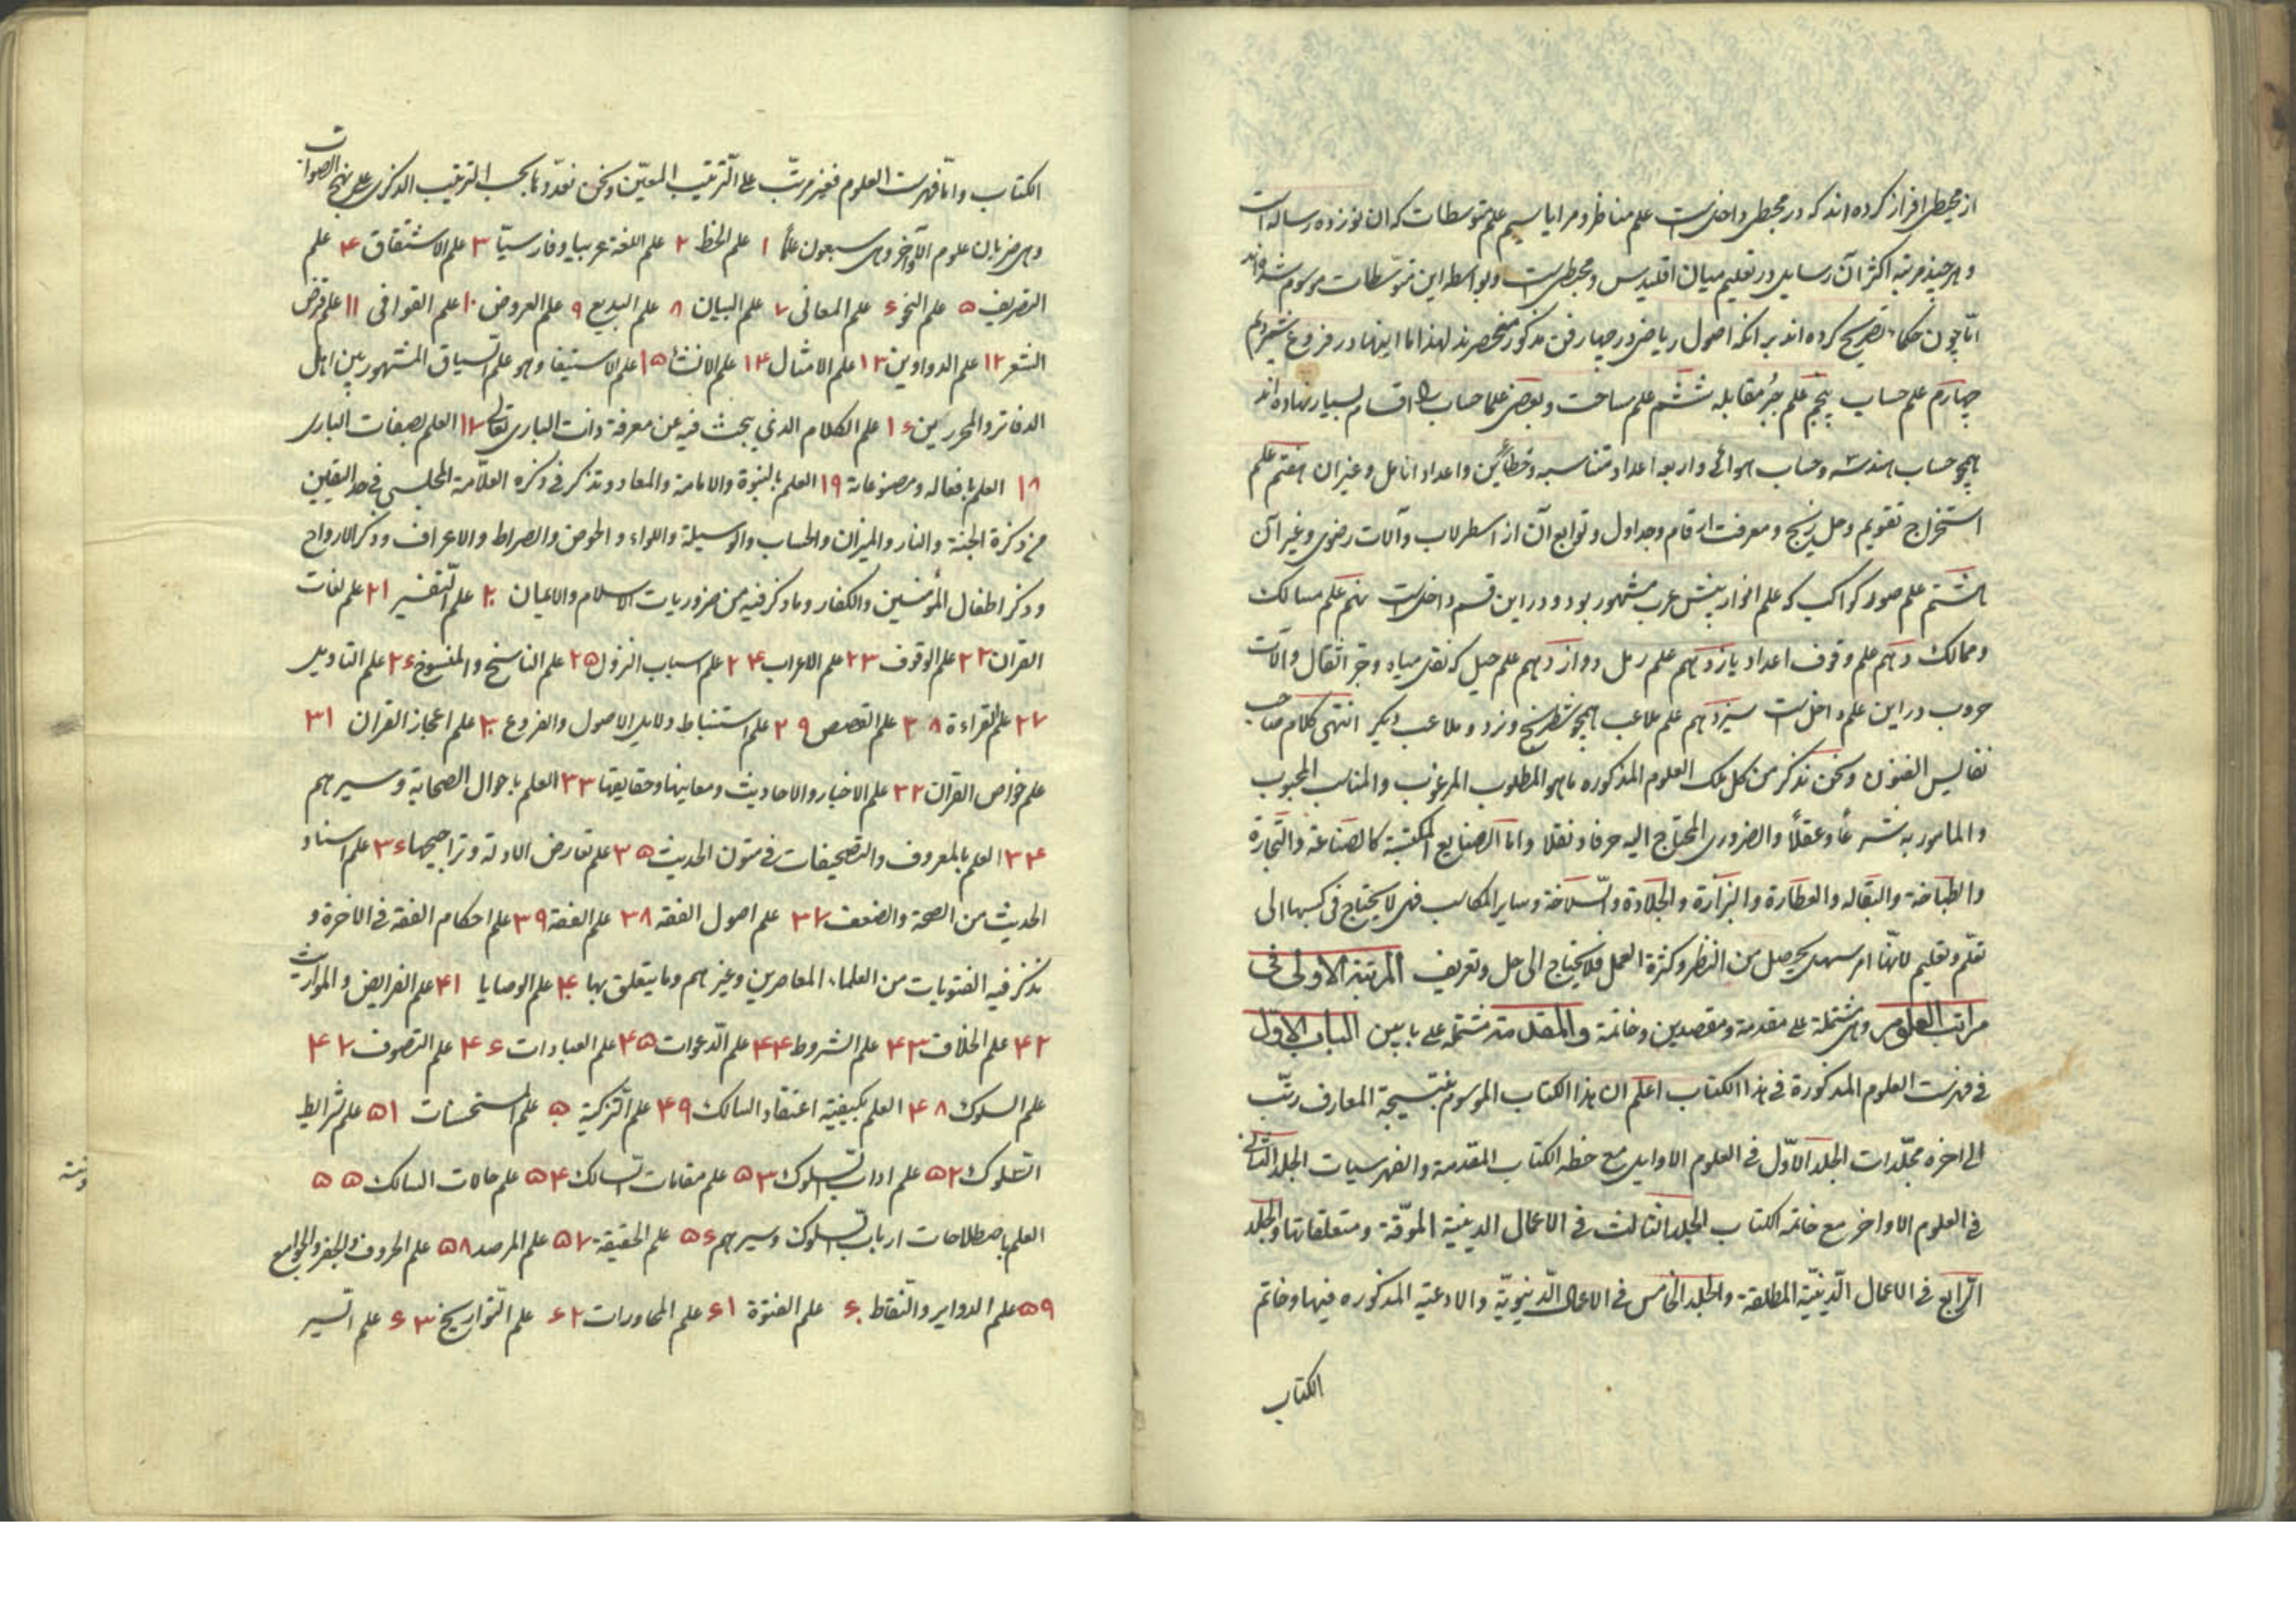 از مجیطی افراز کرده اند که در مجیطی داخلست علم مناظر و مرایا سیم علم متوسطات که ان نوزده رساله است
و هر چند مرتبه اکثر آن رسایل در تعلیم میان اقلیدس و مجیطی است و بواسطه این بمتوسّطات موسوم شده اند
امّا چون حکماء تصریح کرده اند بر انکه اصول ریاضی در چهار فن مذکور منحصرند لهذا ما اینها در فروع شمردیم
چهارم علم حساب پنجم علم جبر و مقابله ششم علم مساحت و بعضی علما حساب را اقسام بسیار نهاده اند
همچو حساب هندسه و حساب هوائی و اربعه اعداد متناسبه و خطائین و اعداد انامل و غیر ان هفتم علم
استخراج تقویم و حل زیج و معرفت ارقام و جداول و توابع آن از اسطرلاب و آلات رضوی و غیر آن
هشتم علم صور کواکب که علم انوار پیش عرب مشهور بود و در این قسم داخلست نهم علم مسالک
و ممالک دهم علم وقوف اعداد یازدهم علم رمل دوازدهم علم حیل که نقل میاه و جر اثقال و الآت
حروب در این علم داخلست سیزدهم علم ملاعب همچو شطرنج و نرد و ملاعب دیکر انتهی کلام صاحب
نفایس الفنون و نحن نذکر من کل تلک العلوم المذکوره ما هو المطلوب المرغوب والمناسب المحبوب
والمامور به شرعاً و عقلاً والضروری المحتاج الیه عرفا و نقلا و اما الصنایع المکتسبة کالصناعة والتجارة
والطباخة والبقاله والعطارة والبزازة والجلادة والسّلاخة وسایر المکاسب فهی لا یحتاج فی کسبها الی
تعلّم و تعلیم لانّها امر سهل یحصل من النظر و کثرة العمل فلا یحتاج الی حل و تعریف المرتبة الاولی فی
مراتب العلوم وهی مشتملة علی مقدمة و مقصدین و خاتمة والمقدمة مشتملة علی بابین الباب الاوّل
فی فهرست العلوم المذکورة فی هذا الکتاب اعلم ان هذا الکتاب الموسوم بنتیجة المعارف رتّب
الی اخره مجلّدات المجلد الاوّل فی العلوم الاوایل مع خطه الکتاب المقدمة والفهرسیات المجلد الثانی
فی العلوم الاواخر مع خاتمة الکتاب المجلد الثالث فی الاعمال الدینیة الموقّتة و متعلقاتها والمجلد
الرّابع فی الاعمال الدّینیّة المطلقة والمجلد الخامس فی الاعمال الدّنیویّة والادعیة المذکوره فیها و خاتم
الکتاب
الکتاب وامّا فهرست العلوم فغیر مرتّب علی التّرتیب المعیّن ونحن نعدّدها بحسب الترتیب الذکری علی نهج الصواب
وهی ضربان علوم الآواخر وهی سبعون علماً ۱ علم الخط ۲ علم اللغة عربیا و فارسیّا ۳ علم الاشتقاق ۴ علم
التصریف ۵ علم النحو ۶ علم المعانی ۷ علم البیان ۸ علم البدیع ۹ علم العروض ۱۰ علم القوافی ۱۱ علم قرض
الشعر ۱۲ علم الدواوین ۱۳ علم الامثال ۱۴ علم الانشاء ۱۵ علم الاستیفا و هو علم السیاق المشهور بین اهل
الدفاتر والمحررین ۱۶ علم الکلام الذی یبحث فیه عن معرفة ذات الباری تعالی ۱۷ العلم بصفات الباری
۱۸ العلم بافعاله و مصنوعاته ۱۹ العلم بالنبوة والامامة والمعاد و نذکر فی ذکره العلّامة المجلسی فی حق الیقین
من ذکرة الجنة والنار والمیزان والحساب والوسیلة واللواء والحوض والصراط والاعراف و ذکر الارواح
و ذکر اطفال المؤمنین والکفار وما ذکر فیه من ضروریات الاسلام والایمان ۲۰ علم التّفسیر ۲۱ علم لغات
القران ۲۲ علم الوقوف ۲۳ علم الاعراب ۲۴ علم اسباب النزول ۲۵ علم الناسخ والمنسوخ ۲۶ علم التاویل
۲۷ علم القراءة ۲۸ علم القصص ۲۹ علم استنباط دلایل الاصول والفروع ۳۰ علم اعجاز القران ۳۱
علم خواص القران ۳۲ علم الاخبار والاحادیث ومعانیها وحقایقها ۳۳ العلم باحوال الصحابة وسیرهم
۳۴ العلم بالمعروف والتصحیفات فی متون الحدیث ۳۵ علم تعارض الادلة و تراجیحها ۳۶ علم اسناد
الحدیث من الصحة والضعف ۳۷ علم اصول الفقه ۳۸ علم الفقه ۳۹ علم احکام الفقه فی الاخرة و
نذکر فیه الفتویات من العلماء المعاصرین وغیرهم وما یتعلق بها ۴۰ علم الوصایا ۴۱ علم الفرایض والمواریث
۴۲ علم الخلاف ۴۳ علم الشروط ۴۴ علم الدّعوات ۴۵ علم العبادات ۴۶ علم التصوف ۴۷
علم السلوک ۴۸ العلم بکیفیّة اعتقاد السالک ۴۹ علم التزکیة ۵۰ علم المستحسنات ۵۱ علم شرایط
السّلوک ۵۲ علم اداب السّلوک ۵۳ علم مقامات السّالک ۵۴ علم حالات السالک ۵۵
العلم باصطلاحات ارباب السّلوک وسیرهم ۵۶ علم الحقیقة ۵۷ علم المرصد ۵۸ علم الحروف والجفر والجوامع
۵۹ علم الدوایر والنّقاط ۶۰ علم الفتوّة ۶۱ علم المحاورات ۶۲ علم التّواریخ ۶۳ علم السّیر